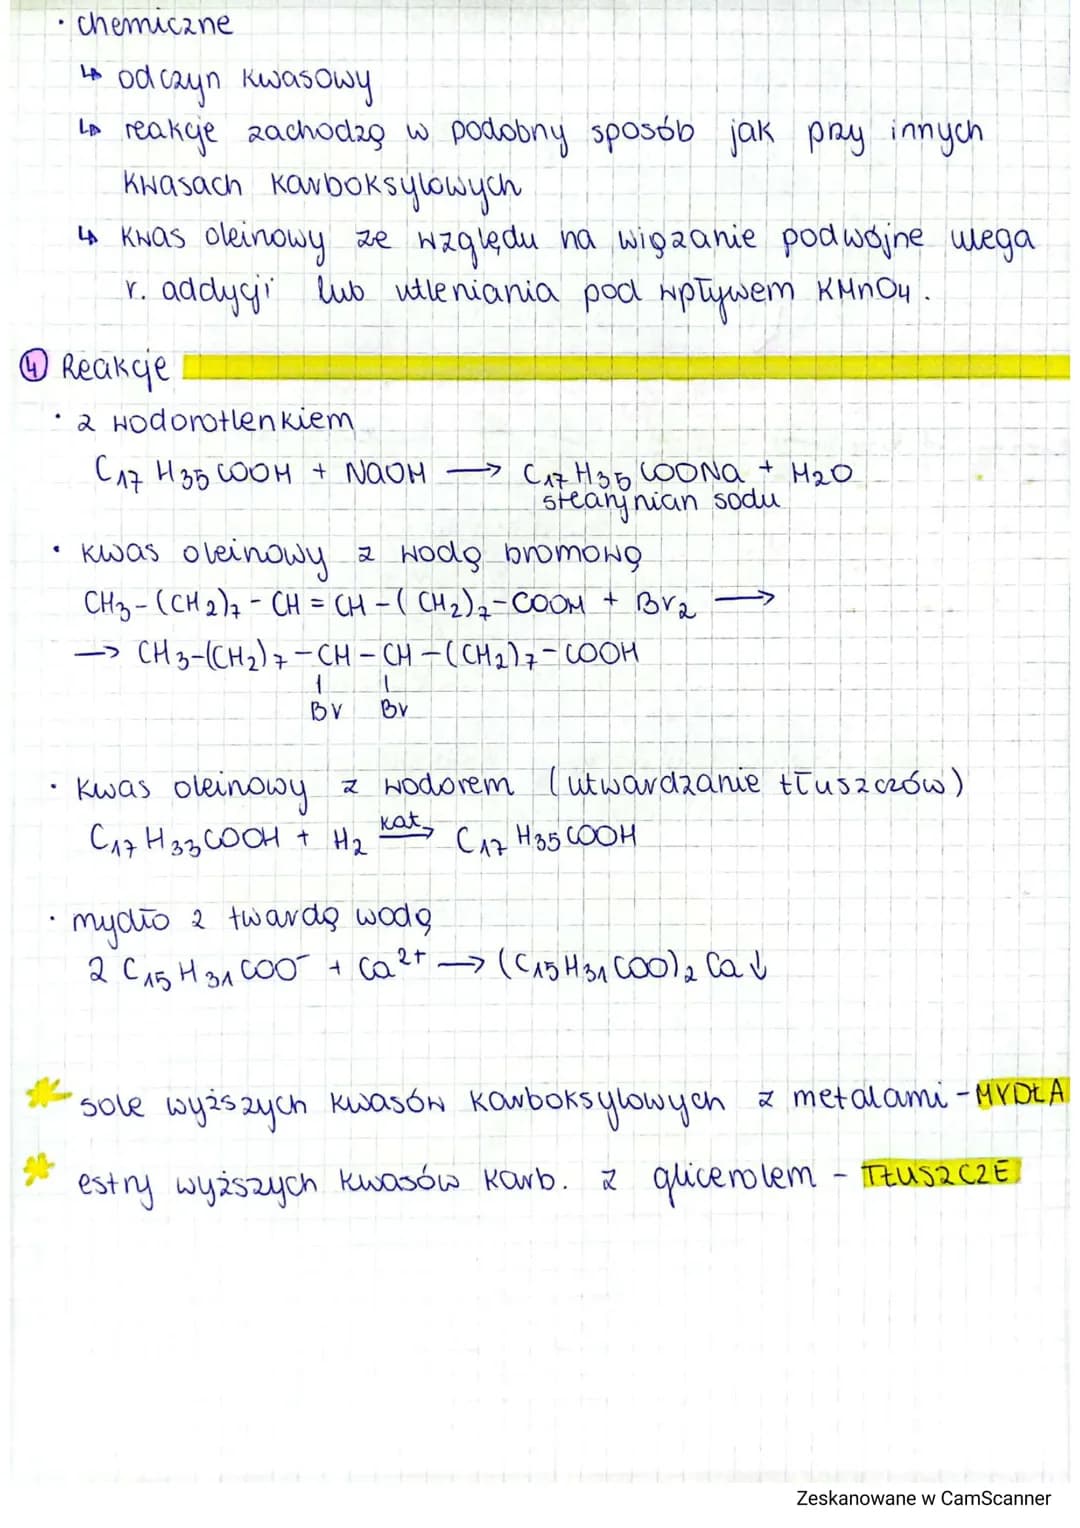 · chemiczne
↳ odczyn kwasowy
↳ reakcje zachodzą w podobny sposób jak przy innych
kwasach karboksylowych
↳ kwas oleinowy ze względu na wiązanie podwójne ulega
r. addycji lub utleniania pod wpływem KMnO₄.
④ Reakcje
· z wodorotlenkiem
C₁₇H₃₅COOH + NaOH → C₁₇H₃₅COONa + H₂O
stearynian sodu
· kwas oleinowy z wodą bromową
CH₃-(CH₂)₇-CH=CH-(CH₂)₇-COOH + Br₂ →
→ CH₃-(CH₂)₇-CH-CH-(CH₂)₇-COOH
Br Br
· kwas oleinowy z wodorem (utwardzanie tłuszczów)
C₁₇H₃₃COOH + H₂ kat.→ C₁₇H₃₅COOH
· mydło z twardą wodą
2 C₁₅H₃₁COO⁻ + Ca²⁺ → (C₁₅H₃₁COO)₂Ca↓
* sole wyższych kwasów karboksylowych z metalami - MYDŁA
* estry wyższych kwasów karb. z glicerolem - TŁUSZCZE
Zeskanowane w CamScanner